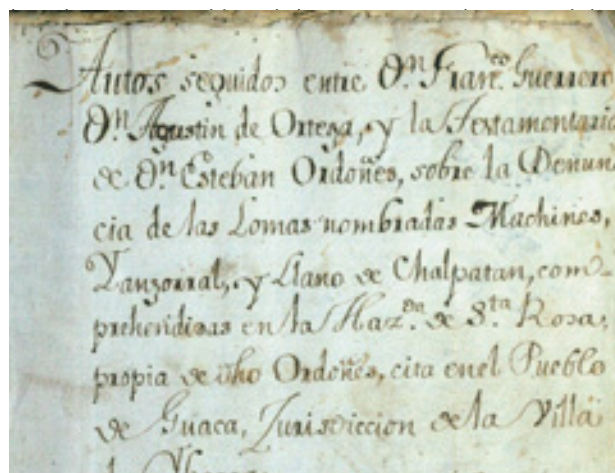 Autos seguidos entre Dn. Franco. Guerrero
Dn. Agustin de Ortega, y la Testamentaria
de Dn. Esteban Ordoñes, sobre la Denun
cia de las Lomas nombradas Machines,
y Llano de Chalpatan, com
prehendidas en la Hazda. de Sta. Rosa,
propia de dho Ordoñes, cita en el Pueblo
de Guaca, Jurisdiccion de la Villa